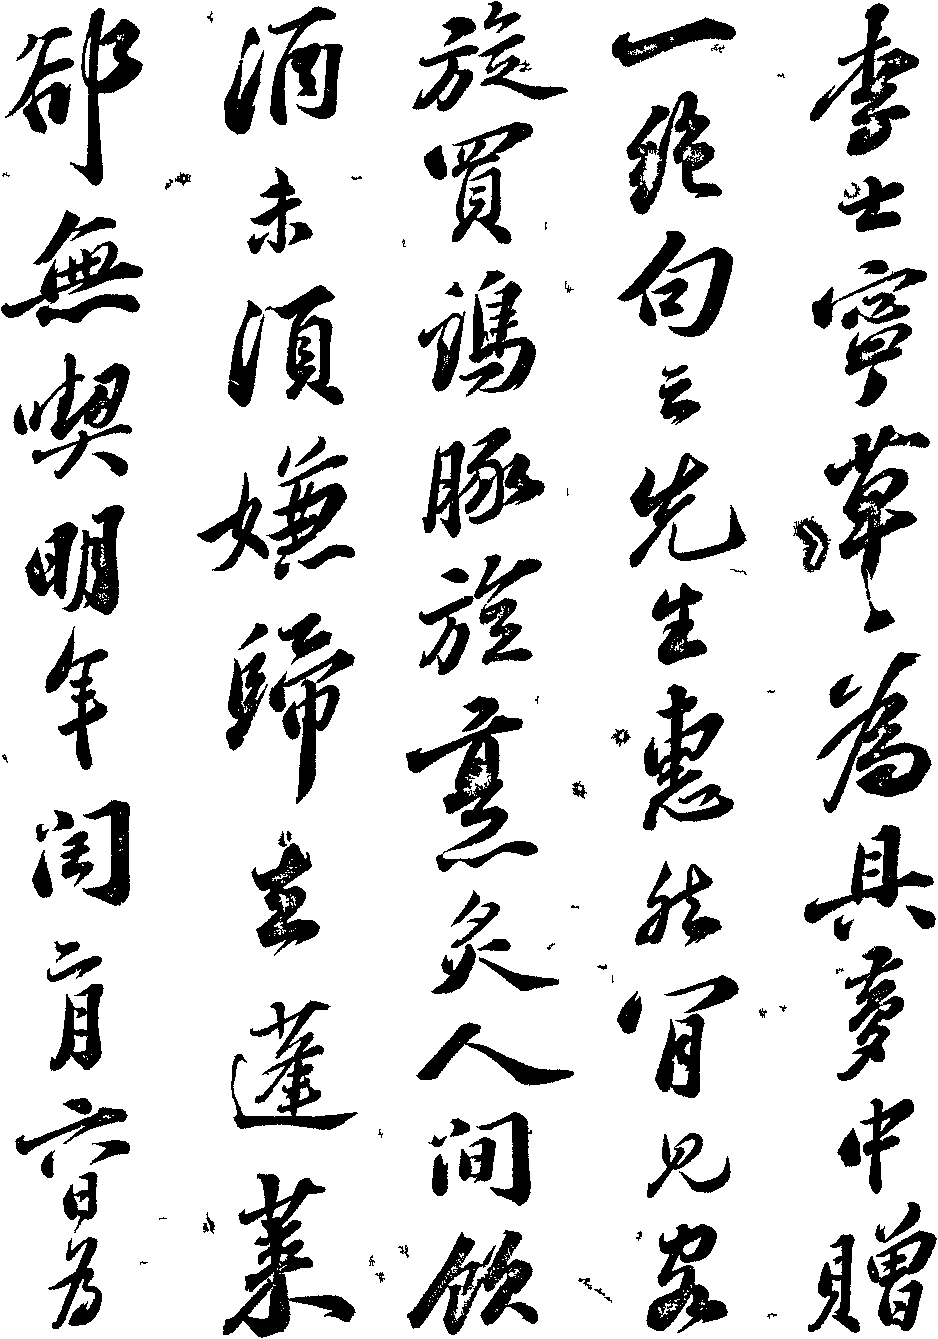 李士寧草〻為具夢中贈
一絕句云先生惠然肯見客
旋買鷄豚旋烹炙人間飲
酒未須嫌歸去蓬萊
卻無喫明年閏二月六日為